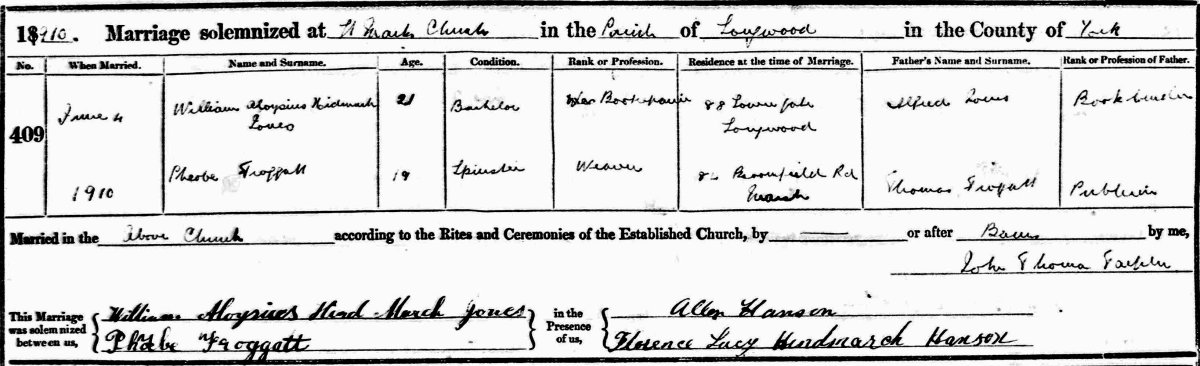 1910. Marriage solemnized at St Marks Church in the Parish of Longwood in the County of York
No. When Married. Name and Surname. Age. Condition. Rank or Profession. Residence at the time of Marriage. Father's Name and Surname. Rank or Profession of Father.
June 4 William Aloysius Hidmarch 21 Bachelor 88 Lowergate Alfred Jones Bookbinder
409 Jones Longwood
Phoebe Froggatt 19 Spinster Weaver Broomfield Rd Thomas Frogatt Publican
1910 Marsh
Married in the above Church according to the Rites and Ceremonies of the Established Church, by — or after Banns by me,
John Thomas
This Marriage was solemnized between us, William Aloysius Hind-March Jones in the Presence of us, Allen Hanson
Phoebe Froggatt Florence Lucy Hindmarch Hanson